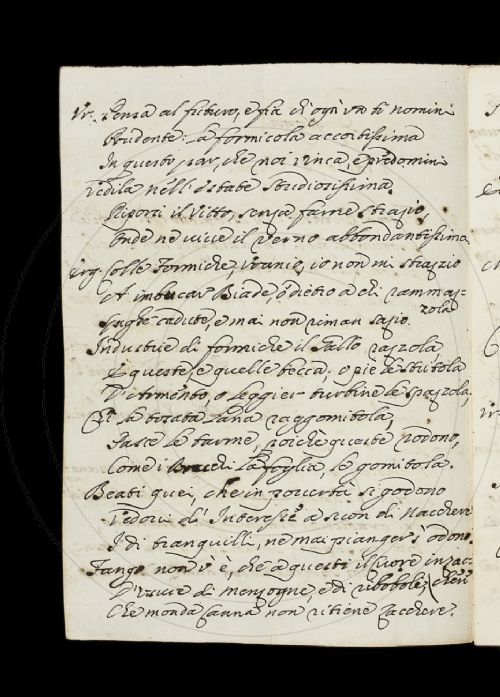 Ur. Pensa al futuro, e fia ch'ogn'un ti nomini
Prudente: La formicola accortissima
In questo par, che noi vinca, e predomini
Vedila nell'Estate studiosissima
Ripor il Vitto, senza farne strazio,
Onde ne vive il verno abbondantissima
Erg. Colle Formiche, Uranio, io non mi strazio
Ad imbucar Biade, o dietro a chi rammaz-
zola
Spighe cadute, e mai non riman sazio.
Industrie di formiche il Gallo razzola,
E queste e quelle becca; o piè le stritola
D'Armento, o leggier turbine le spazzola.
Chi la tosata Lana raggomitola,
Pasce le tarme, poiche queste rodono,
Come i Bruchi la foglia, le gomitola.
Beati quei, che in povertà si godono
Tesori d'
a suon di Nacchere
I dì tranquilli, ne mai pianger s'odono
Fango non v'è, che a questi il cuore inzac-
cheri
D'Usure di menzogne, e di ribobole;
Che monda canna non ritiene zacchere.